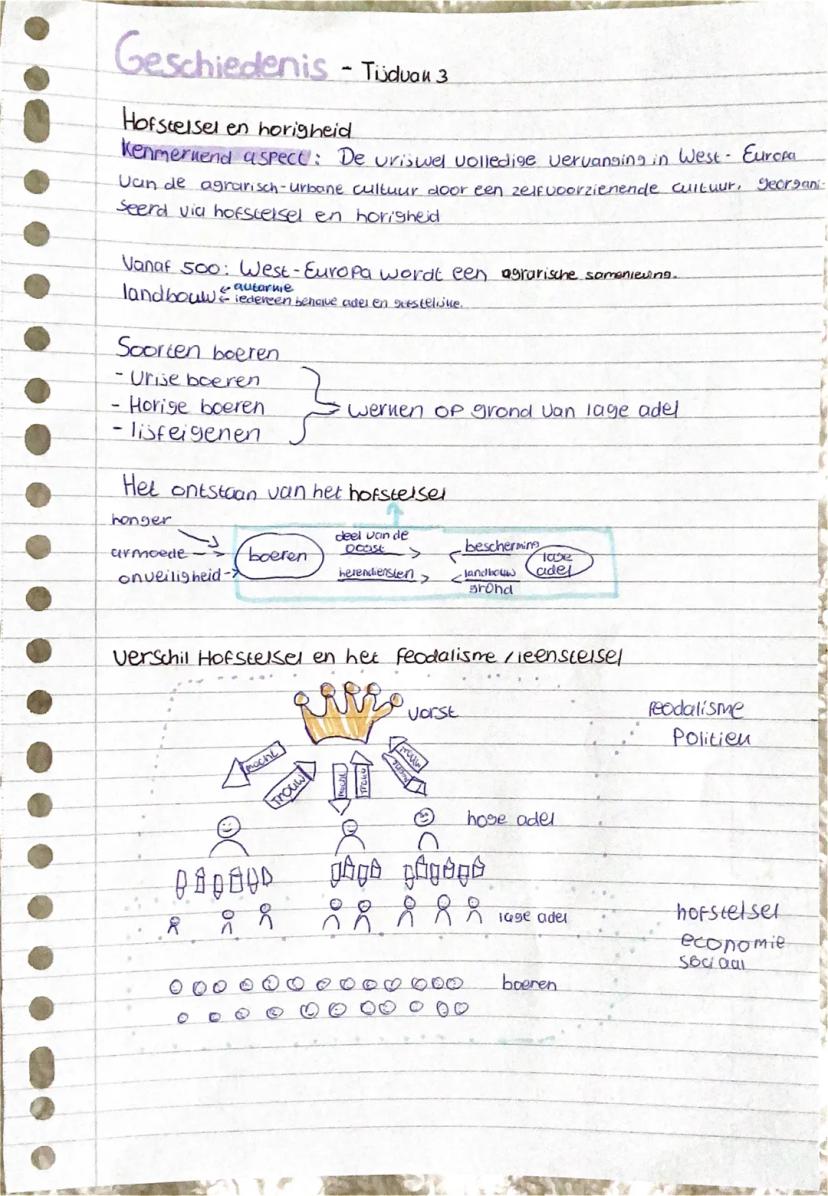 Geschiedenis - Tijdvak 3
Hofstelsel en horigheid
Kenmerkend aspect: De vrijwel volledige vervanging in West-Europa
van de agrarisch-urbane cultuur door een zelfvoorzienende cultuur, georgani-
seerd via hofstelsel en horigheid
Vanaf 500: West-Europa wordt een agrarische samenleving.
autarkie
landbouw iedereen behalve adel en geestelijke.
Soorten boeren
- Vrije boeren
- Horige boeren
- lijfeigenen
werken op grond van lage adel
Het ontstaan van het hofstelsel
honger
armoede
onveiligheid
boeren
deel van de
oogst
herendiensten
bescherming
landbouw
grond
lage
adel
Verschil Hofstelsel en het feodalisme / leenstelsel
vorst
feodalisme
Politiek
macht
trouw
macht
trouw
trouw
hoge adel
lage adel
hofstelsel
economie
sociaal
boeren